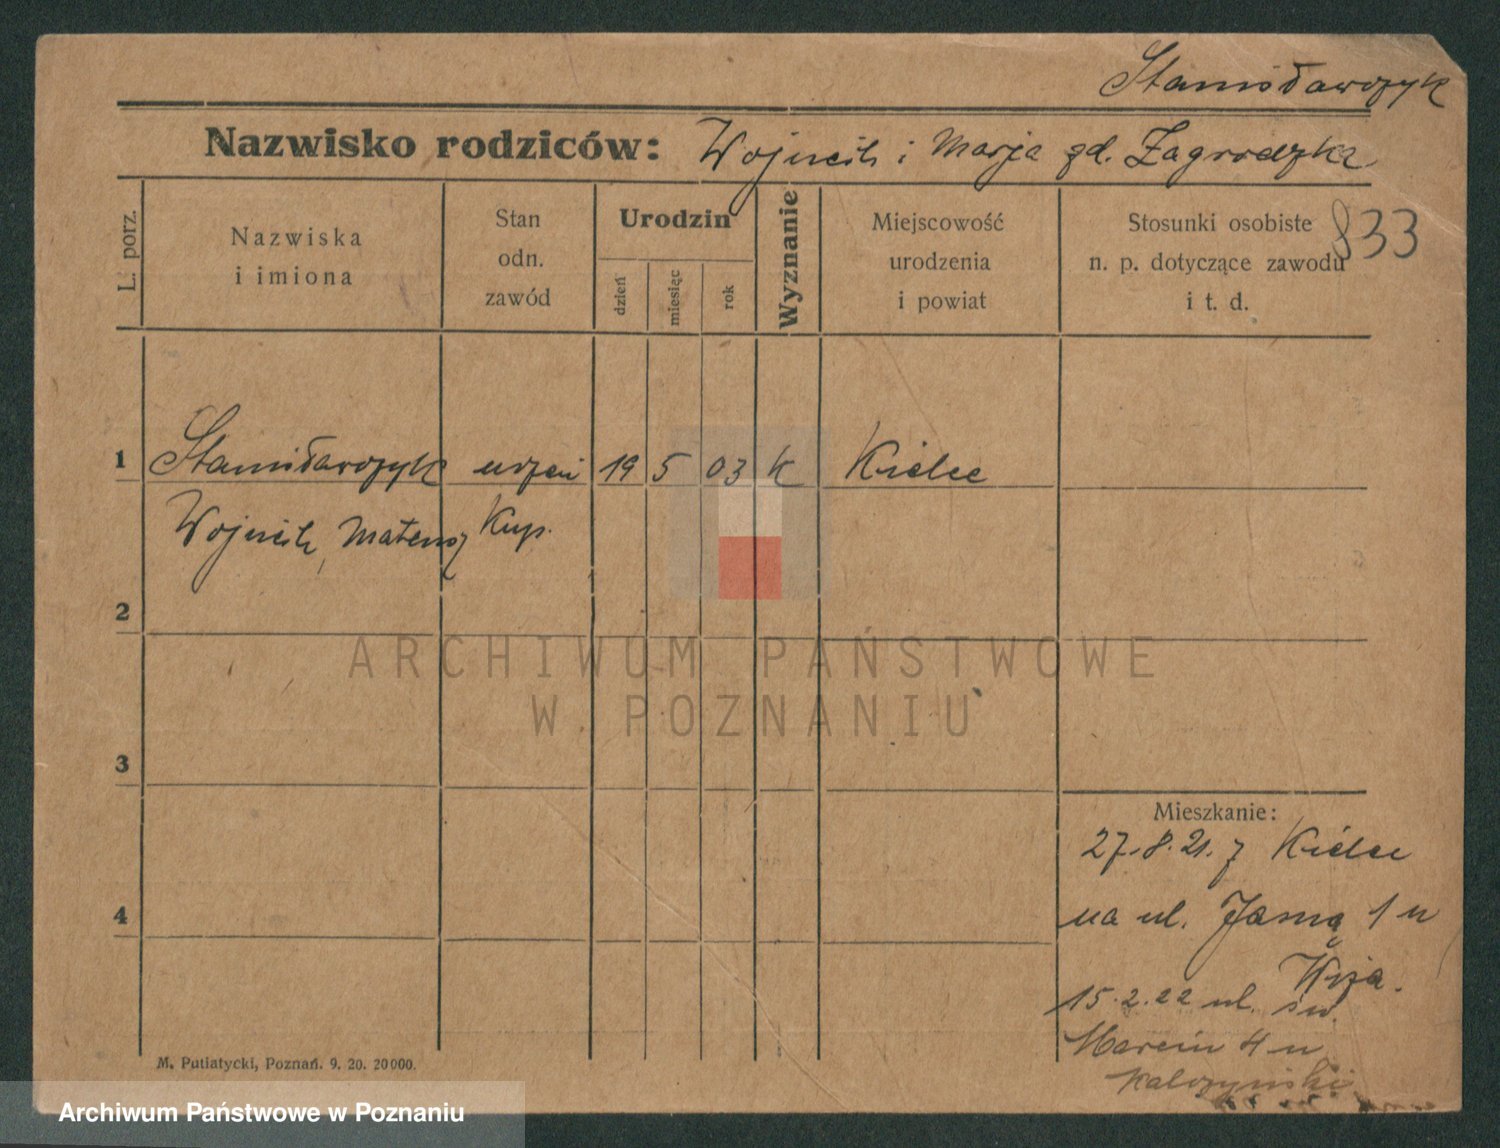 Stanisławczyk
Nazwisko rodziców: Wojciech i Marja zd. Zagrodzka
L. porz.
Nazwiska
i imiona
Stan
odn.
zawód
Urodzin
dzień
miesiąc
rok
Wyznanie
Miejscowość
urodzenia
i powiat
Stosunki osobiste
n. p. dotyczące zawodu
i t. d.
833
1 Stanisławczyk uczeń 19 5 03 k Kielce
Wojciech, Mateusz Kup.
2
3
4
Mieszkanie:
27.8.21. z Kielce
na ul. Jasną 1 u
15.2.22 ul. św.
Marcin 4 u
Kalczyński
M. Putiatycki, Poznań. 9. 20. 20000.
ARCHIWUM PAŃSTWOWE
W POZNANIU
Archiwum Państwowe w Poznaniu